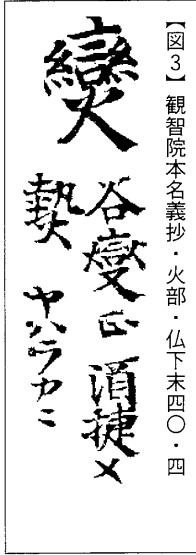 【図3】 観智院本名義抄・火部・仏下末四〇・四
谷燮正 湏捷メ
ヤハラカニ